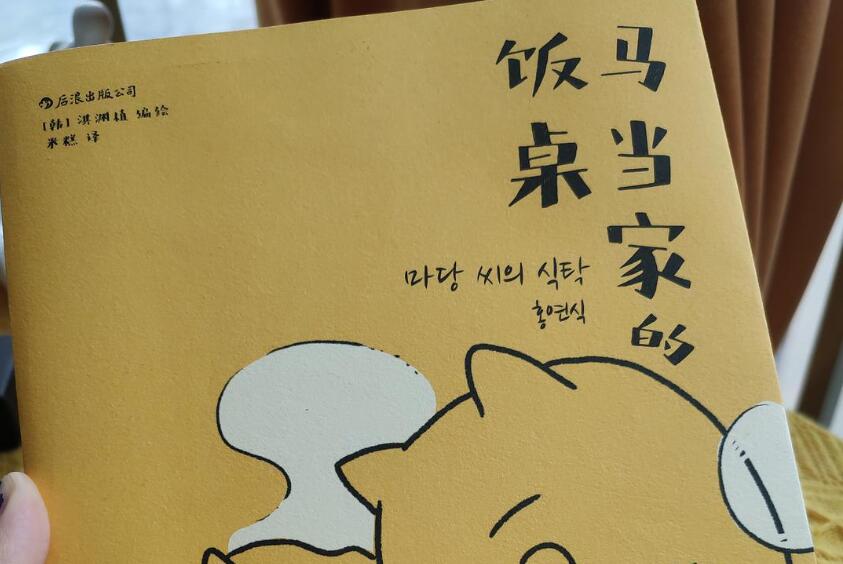 后浪出版公司
[韩] 洪渊植 编绘
米糕 译
马当家的
饭桌
마당 씨의 식탁
홍연식